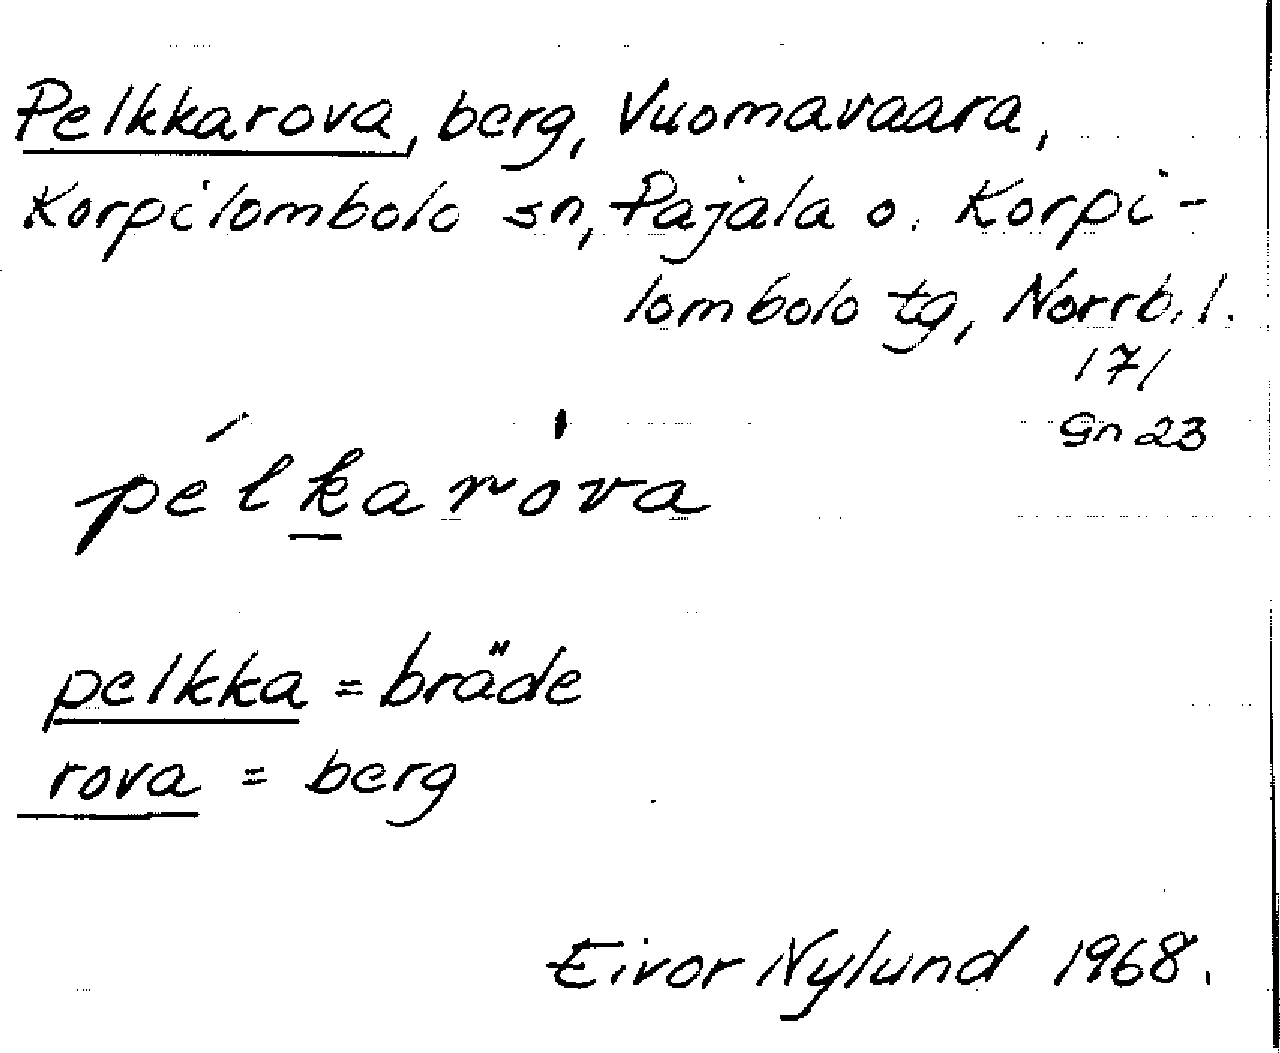 Pelkkarova, berg, Vuomavaara,
Korpilombolo sn, Pajala o. Korpi-
lombolo tg, Norrb. l.
171
Gn 23
pélkaróva
pelkka = bräde
rova = berg
Eivor Nylund 1968.